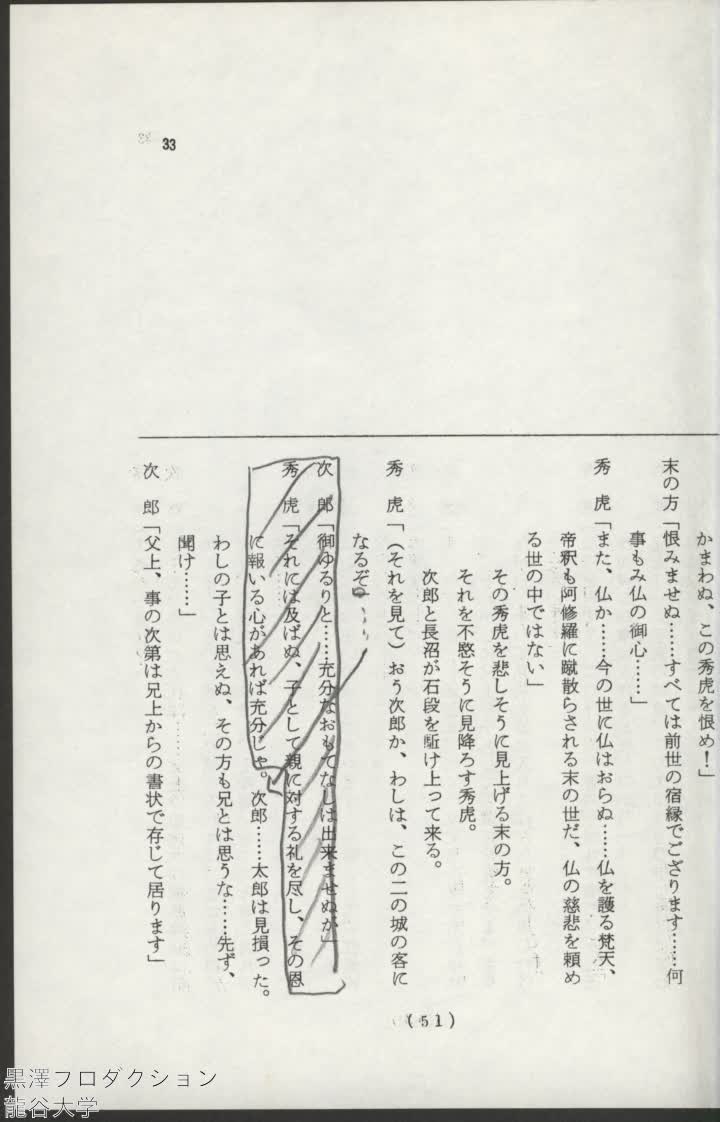 かまわぬ、この秀虎を恨め！」
末の方「恨みませぬ……すべては前世の宿縁でござります……何
事もみ仏の御心……」
秀　虎「また、仏か……今の世に仏はおらぬ……仏を護る梵天、
帝釈も阿修羅に蹴散らされる末の世だ、仏の慈悲を頼め
る世の中ではない」
その秀虎を悲しそうに見上げる末の方。
それを不愍そうに見降ろす秀虎。
次郎と長沼が石段を駈け上って来る。
秀　虎「（それを見て）おう次郎か、わしは、この二の城の客に
なるぞ
次　郎「御ゆるりと……充分なおもてなしは出来ませぬが」
秀　虎「それには及ばぬ、子として親に対する礼を尽し、その恩
に報いる心があれば充分じゃ。次郎……太郎は見損った。
わしの子とは思えぬ、その方も兄とは思うな……先ず、
聞け……」
次　郎「父上、事の次第は兄上からの書状で存じて居ります」
33
(51)
黒澤プロダクション
龍谷大学